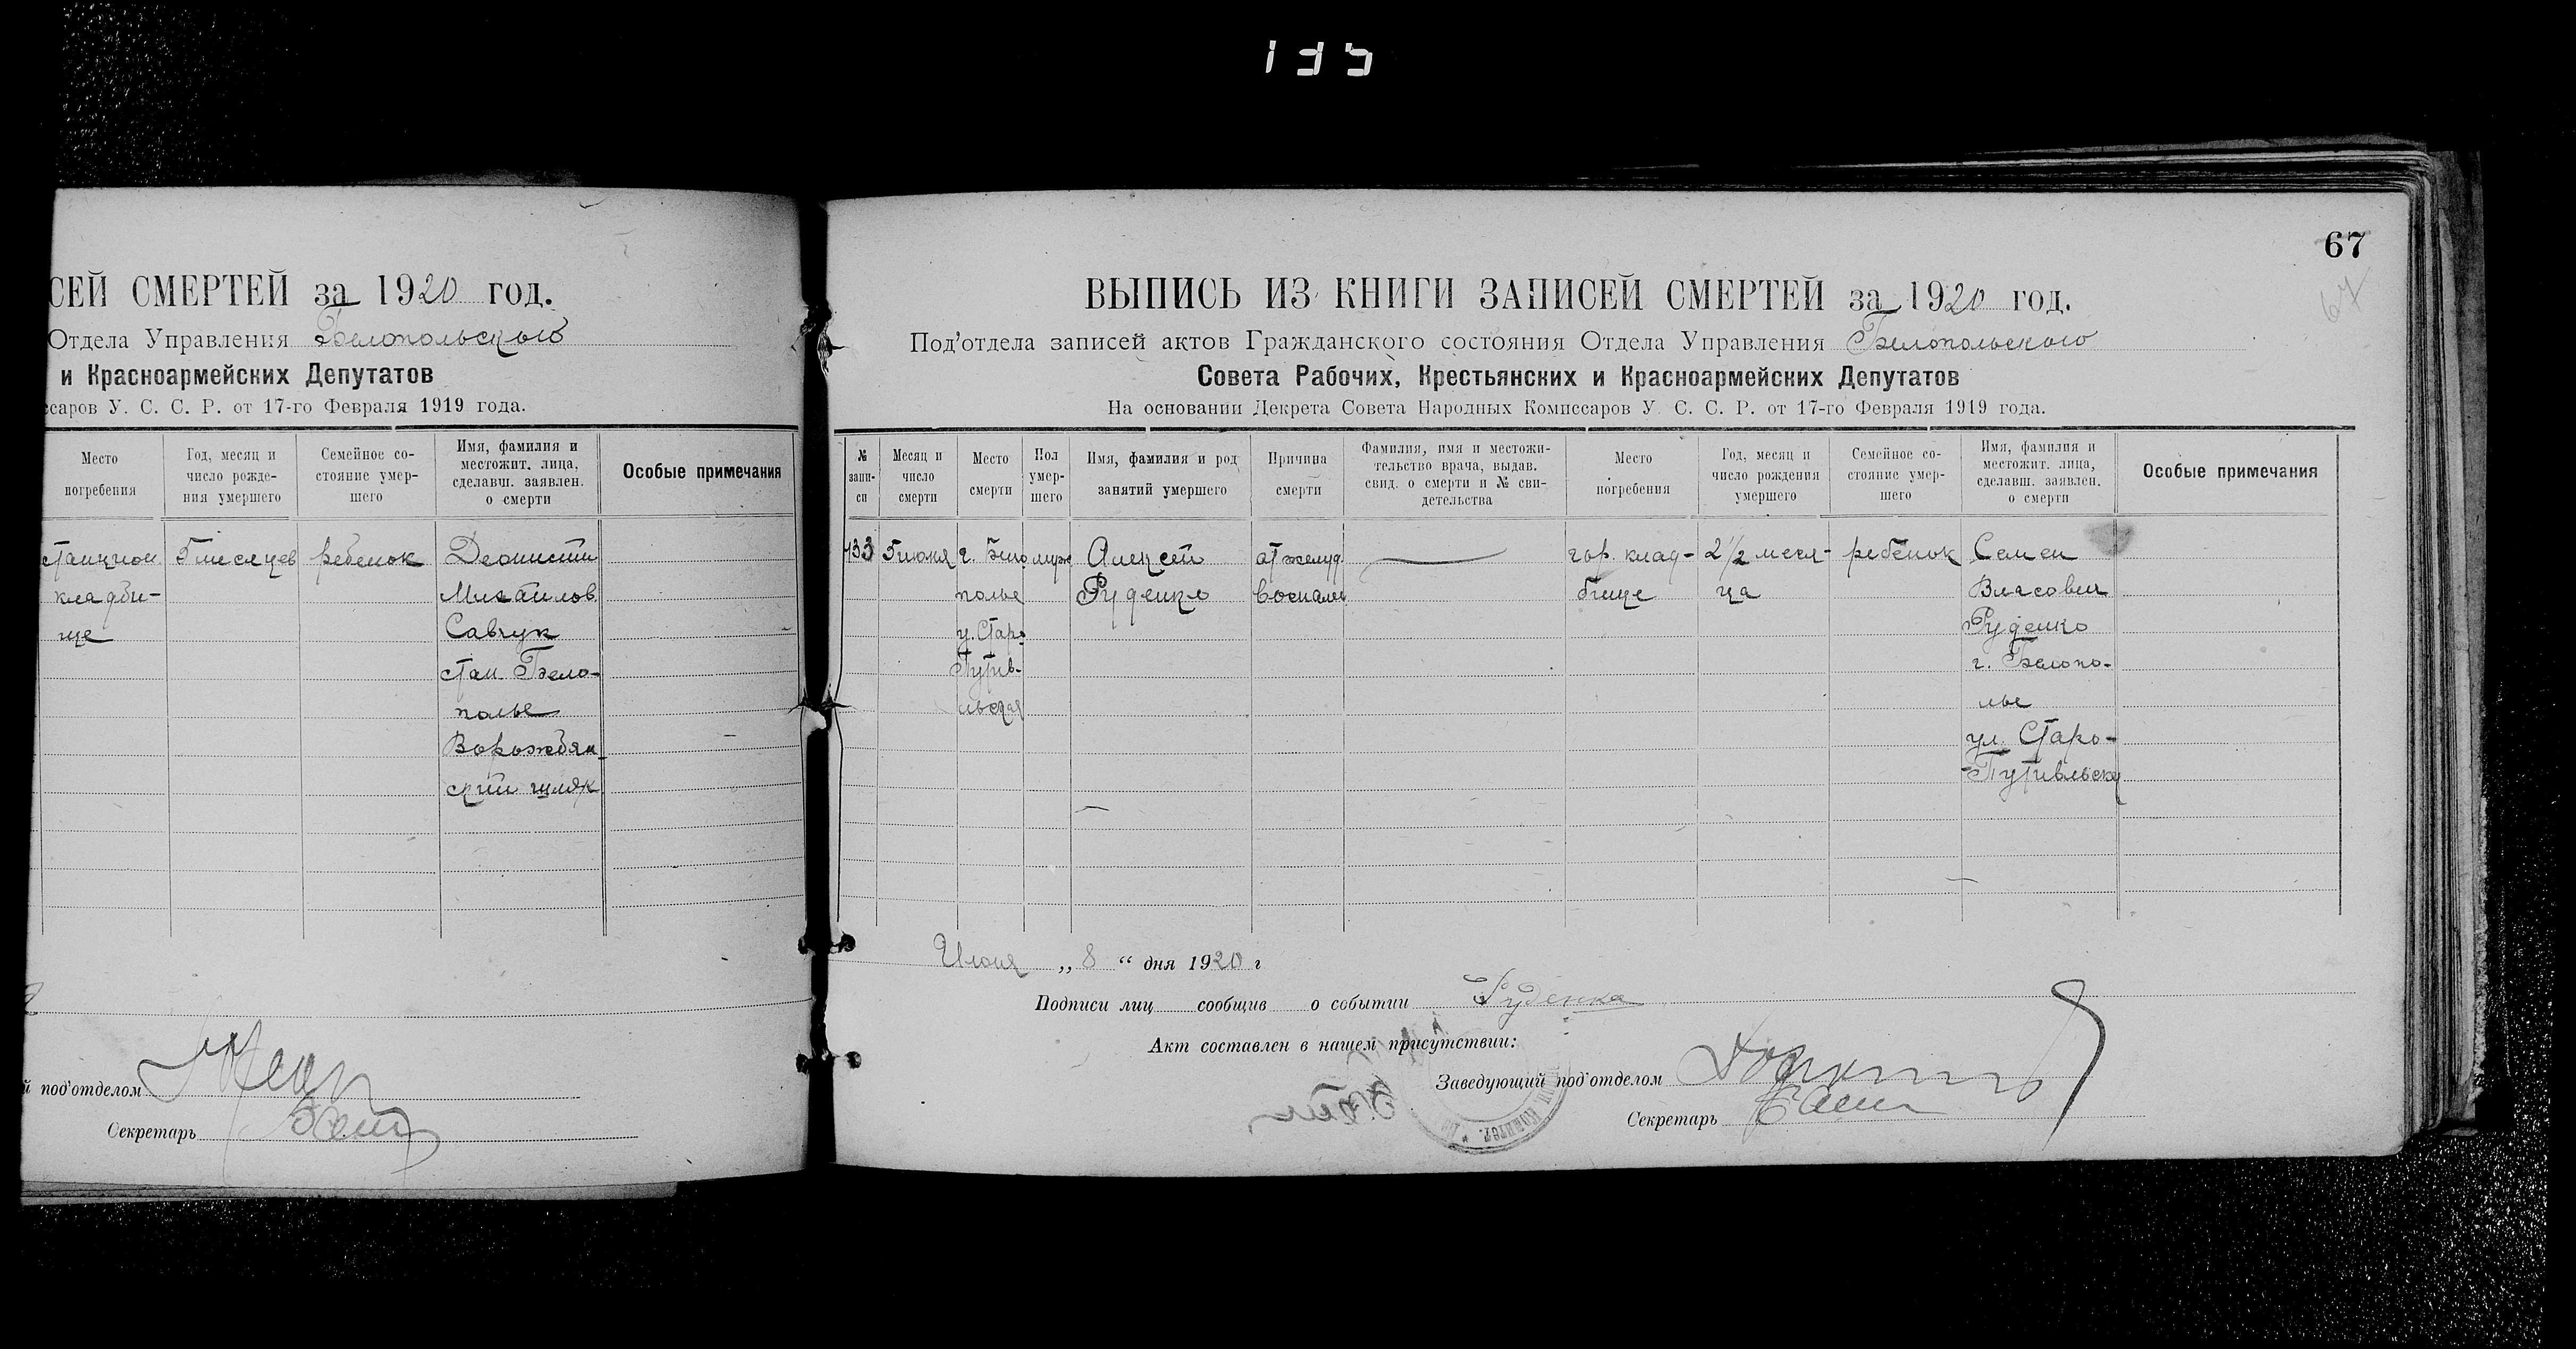 135
СЕЙ СМЕРТЕЙ за 1920 год.
Отдела Управления Белопольского
и Красноармейских Депутатов
ссаров У. С. С. Р. от 17-го Февраля 1919 года.
Место погребения
Год, месяц и число рожде-ния умершего
Семейное со-стояние умер-шего
Имя, фамилия и местожит. лица, сделавш. заявлен. о смерти
Особые примечания
станцион
кладби-
ще
5 месяцев
ребенок
Деонисий
Михайлов
Савчук
стан. Бело-
полье
Ворожбян
ский шлях
й под'отделом
Секретарь
67
67
ВЫПИСЬ ИЗ КНИГИ ЗАПИСЕЙ СМЕРТЕЙ за 1920 год.
Под'отдела записей актов Гражданского состояния Отдела Управления Белопольского
Совета Рабочих, Крестьянских и Красноармейских Депутатов
На основании Декрета Совета Народных Комиссаров У. С. С. Р. от 17-го Февраля 1919 года.
№ запи-си
Месяц и число смерти
Место смерти
Пол умер-шего
Имя, фамилия и род занятий умершего
Причина смерти
Фамилия, имя и местожи-тельство врача, выдав. свид. о смерти и № сви-детельства
Место погребения
Год, месяц и число рождения умершего
Семейное со-стояние умер-шего
Имя, фамилия и местожит. лица, сделавш. заявлен. о смерти
Особые примечания
133
5 июня
г. Бело
полье
у. Старо
Путив-
льская
муж
Алексей
Руденко
от желуд
воспален
гор. клад-
бище
2 1/2 меся-
ца
ребенок
Семен
Власович
Руденко
г. Белопо-
лье
ул. Старо-
Путивльска
Июня „ 8 “ дня 1920 г
Подписи лиц сообщив о событии Руденко
Акт составлен в нашем присутствии:
Заведующий под'отделом
Секретарь